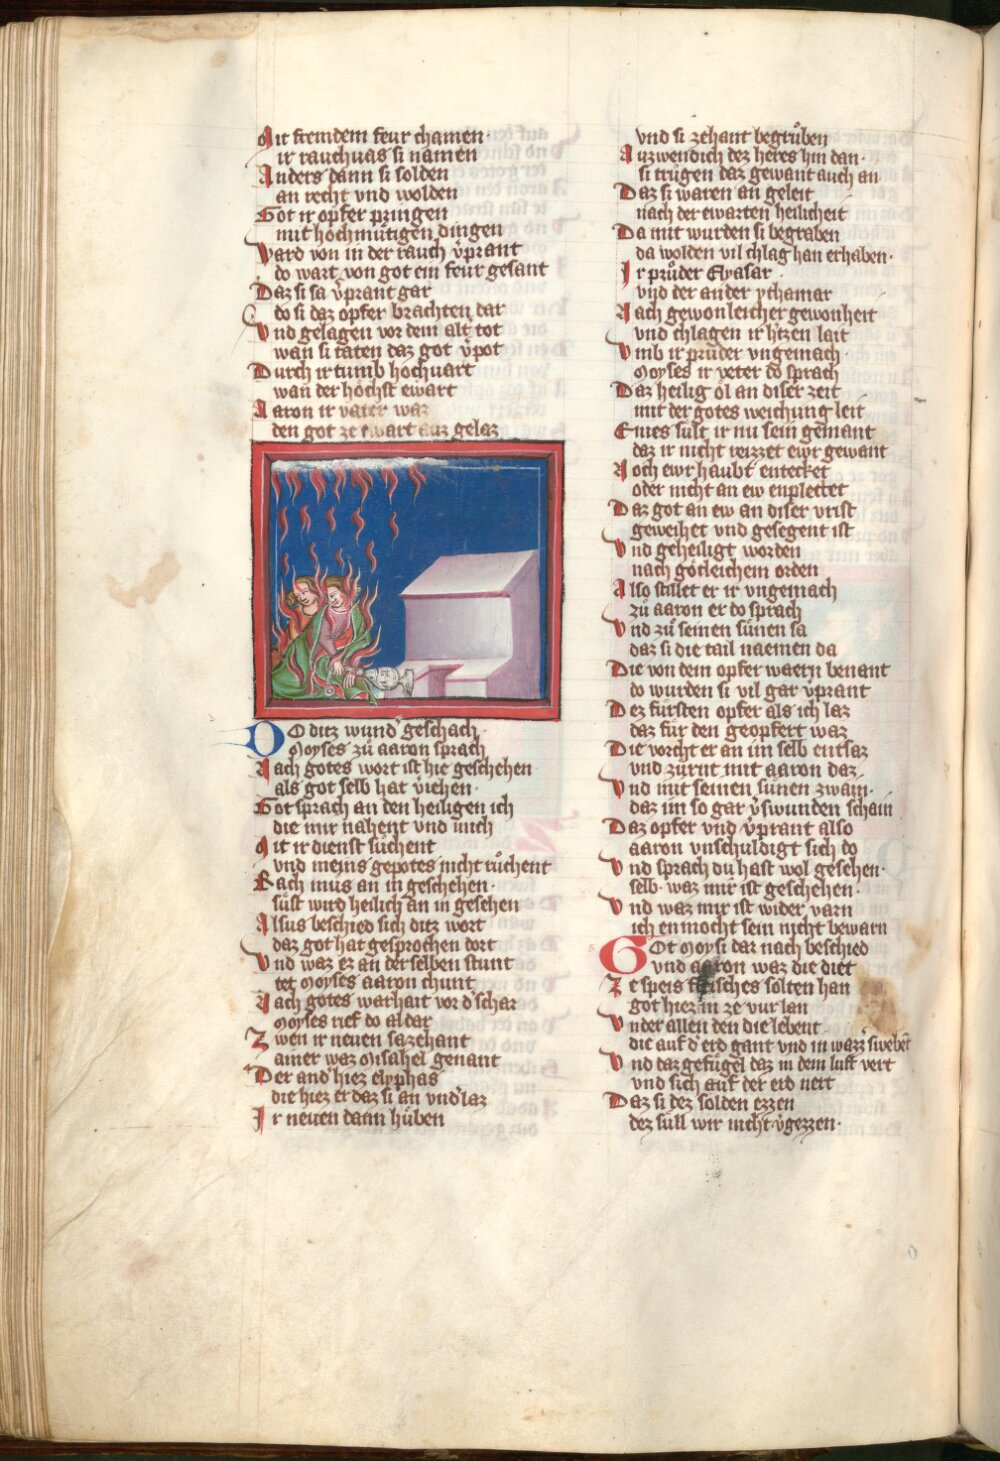 Mit fremdem feur chamen
ir rauchuas si namen
Anders dann si solden
an recht vnd wolden
Got ir opfer pringen
mit hochmütigen dingen
Ward von in der rauch v̓prant
do wart von got ein feur gesant
Daz si sa v̓prant gar
do si daz opfer brachten dar
Vnd gelagen vor dem alt̓ tot
wan si taten daz got v̓pot
Durch ir tumb hochuart
wan der höchst ewart
Aaron ir vater waz
den got ze ewart auz gelaz
DO ditz wund̓ geschach
Moyses zů aaron sprach
Nach gotes wort ist hie geschehen
als got selb hat viehen
Got sprach an den heiligen ich
die mir nahent vnd mich
Mit ir dienst süchent
vnd meins gepotes nicht růchent
Rach mus an in geschehen
süst wird heilich an in gesehen
Alsus beschied sich ditz wort
daz got hat gesprochen dort
Vnd waz er an der selben stunt
tet moyses aaron chunt
Nach gotes warhait vor d̓ schar
Moyses rief do al dar
Zwen ir neuen sazehant
ainer waz Misahel genant
Der and̓ hiez elyphas
die hiez er daz si an vnd̓laz
Ir neuen dann hůben
vnd si zehant begrůben
Auzwendich dez heres hin dan
si trůgen daz gewant auch an
Daz si waren an geleit
nach der ewarten heilicheit
Da mit wurden si begraben
da wolden vil chlag han erhaben
Ir průder Elyasar
vnd der ander ythamar
Nach gewonleicher gewonheit
vnd chlagen ir h̓tzen lait
Vmb ir průder vngemach
Moyses ir veter do sprach
Daz heilig öl an diser zeit
mit der gotes weichung leit
Enies sült ir nu sein gemant
daz ir nicht reizzet ewr gewant
Noch ewr haubt entecket
oder nicht an ew enplecket
Daz got an ew an diser vrist
geweihet vnd gesegent ist
Vnd geheiligt worden
nach götleichem orden
Also stillet er ir vngemach
zů aaron er do sprach
Vnd zů seinen sünen sa
daz si die tail naemen da
Die von dem opfer waern benant
do wurden si vil gar v̓prant
Dez fürsten opfer als ich laz
daz für den geopfert waz
Die vorcht er an im selb entsaz
vnd zurnt mit aaron daz
Vnd mit seinen sünen zwain
daz im so gar v̓swunden schain
Daz opfer vnd v̓prant also
aaron vnschuldigt sich do
Vnd sprach du hast wol gesehen
selb waz mir ist geschehen
Vnd waz mir ist wider varn
ich enmocht sein nicht bewarn
Got moysi dar nach beschied
vnd aaron waz die diet
Ze speis fleisches solten han
got hiez in ze vur lan
Vnder allen den die lebent
die auf d̓ erd gant vnd in wazz̓ swebēt
Vnd daz gefügel daz in dem luft vert
vnd sich auf der erd nert
Daz si dez solden ezzen
dez süll wir nicht v̓gezzen